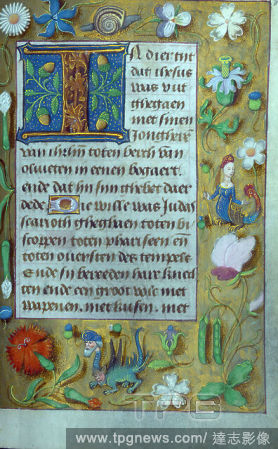 In dier tijt
dat ihesus
was uut
ghegaen
met sinen
Jongheren
van ihrlm toten berch van
oliueten in eenen bogaert.
ende dat hij sin ghebet daer
dede. wile was Judas
scarioth ghegaen toten bi
scopen toten phariseen en
toten ouersten des tempels
Ende si bereeden haer knech
ten ende een groot volc met
wapenen. met met
TPG
www.tpgnews.com/達志影像